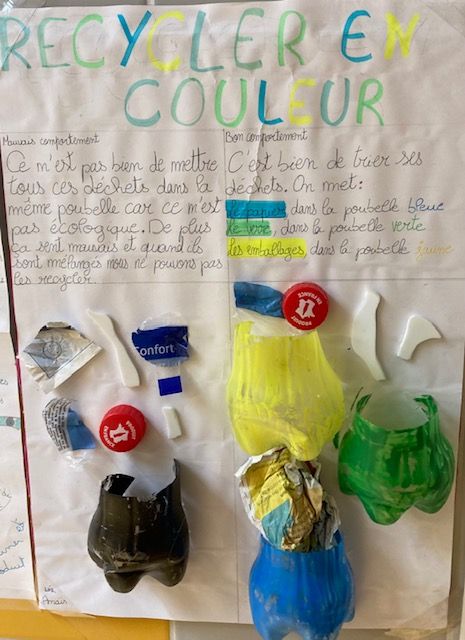 RECYCLER EN
COULEUR
Mauvais comportement
Ce n'est pas bien de mettre
tous ces déchets dans la
même poubelle car ce n'est
pas écologique. De plus
ça sent mauvais et quand ils
sont mélangés nous ne pouvons pas
les recycler.
Bon comportement
C'est bien de trier ses
déchets. On met:
Le papier dans la poubelle bleue
Le verre, dans la poubelle verte
Les emballages dans la poubelle jaune
Confort
PRODUIT
Anaïs